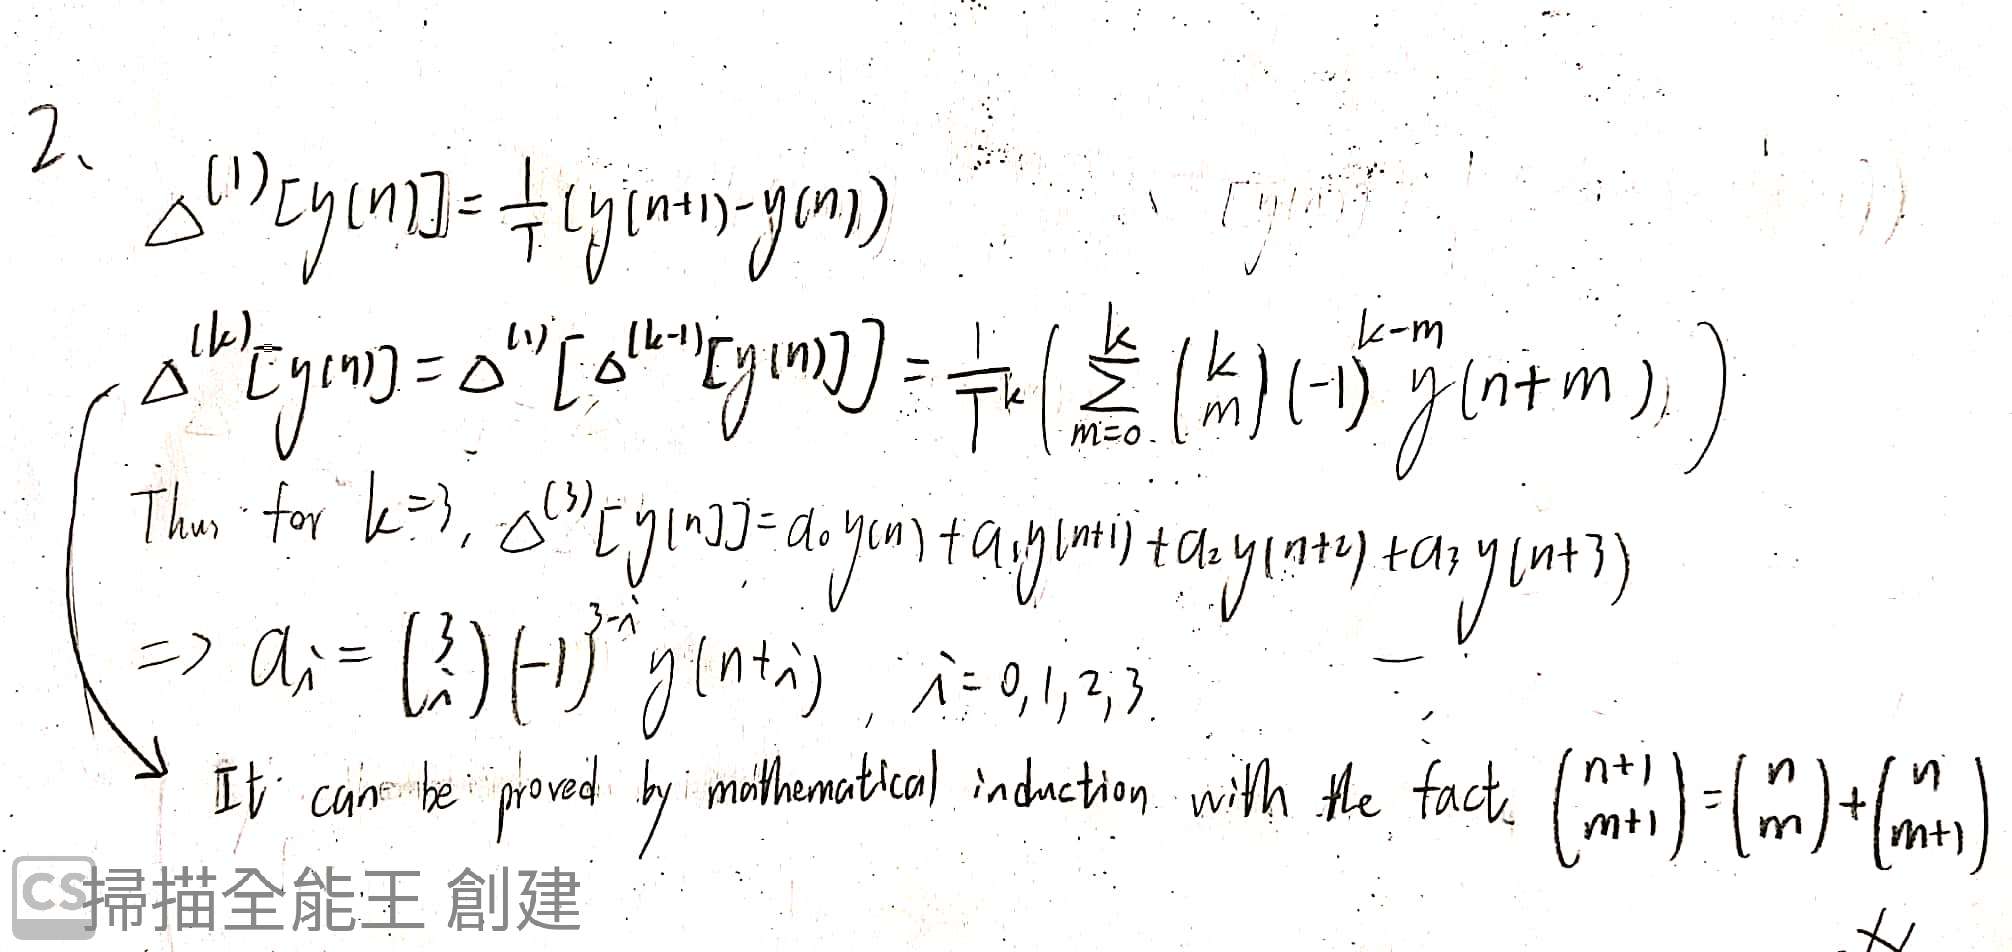 2.
Δ^(1)[y(n)] = 1/T (y(n+1)-y(n))
Δ^(k)[y(n)] = Δ^(1)[Δ^(k-1)[y(n)]] = 1/T^k ( Σ_{m=0}^{k} (k m) (-1)^{k-m} y(n+m) )
Thus for k=3, Δ^(3)[y(n)] = a₀y(n) + a₁y(n+1) + a₂y(n+2) + a₃y(n+3)
=> a_i = (3 i) (-1)^{3-i} y(n+i), i = 0,1,2,3.
It can be proved by mathematical induction with the fact (n+1 m+1) = (n m) + (n m+1)
CS掃描全能王 創建